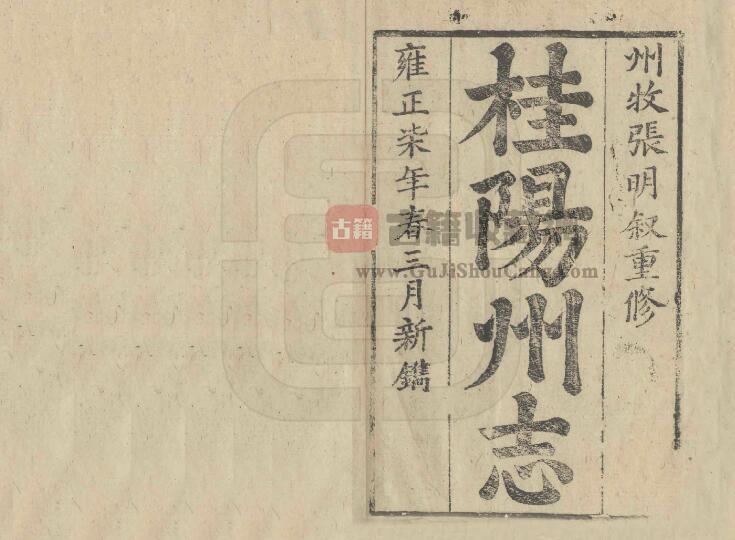 州牧張明叙重修
桂陽州志
雍正柒年春三月新鐫
古籍
古籍收
www.GuJiShouCang.com